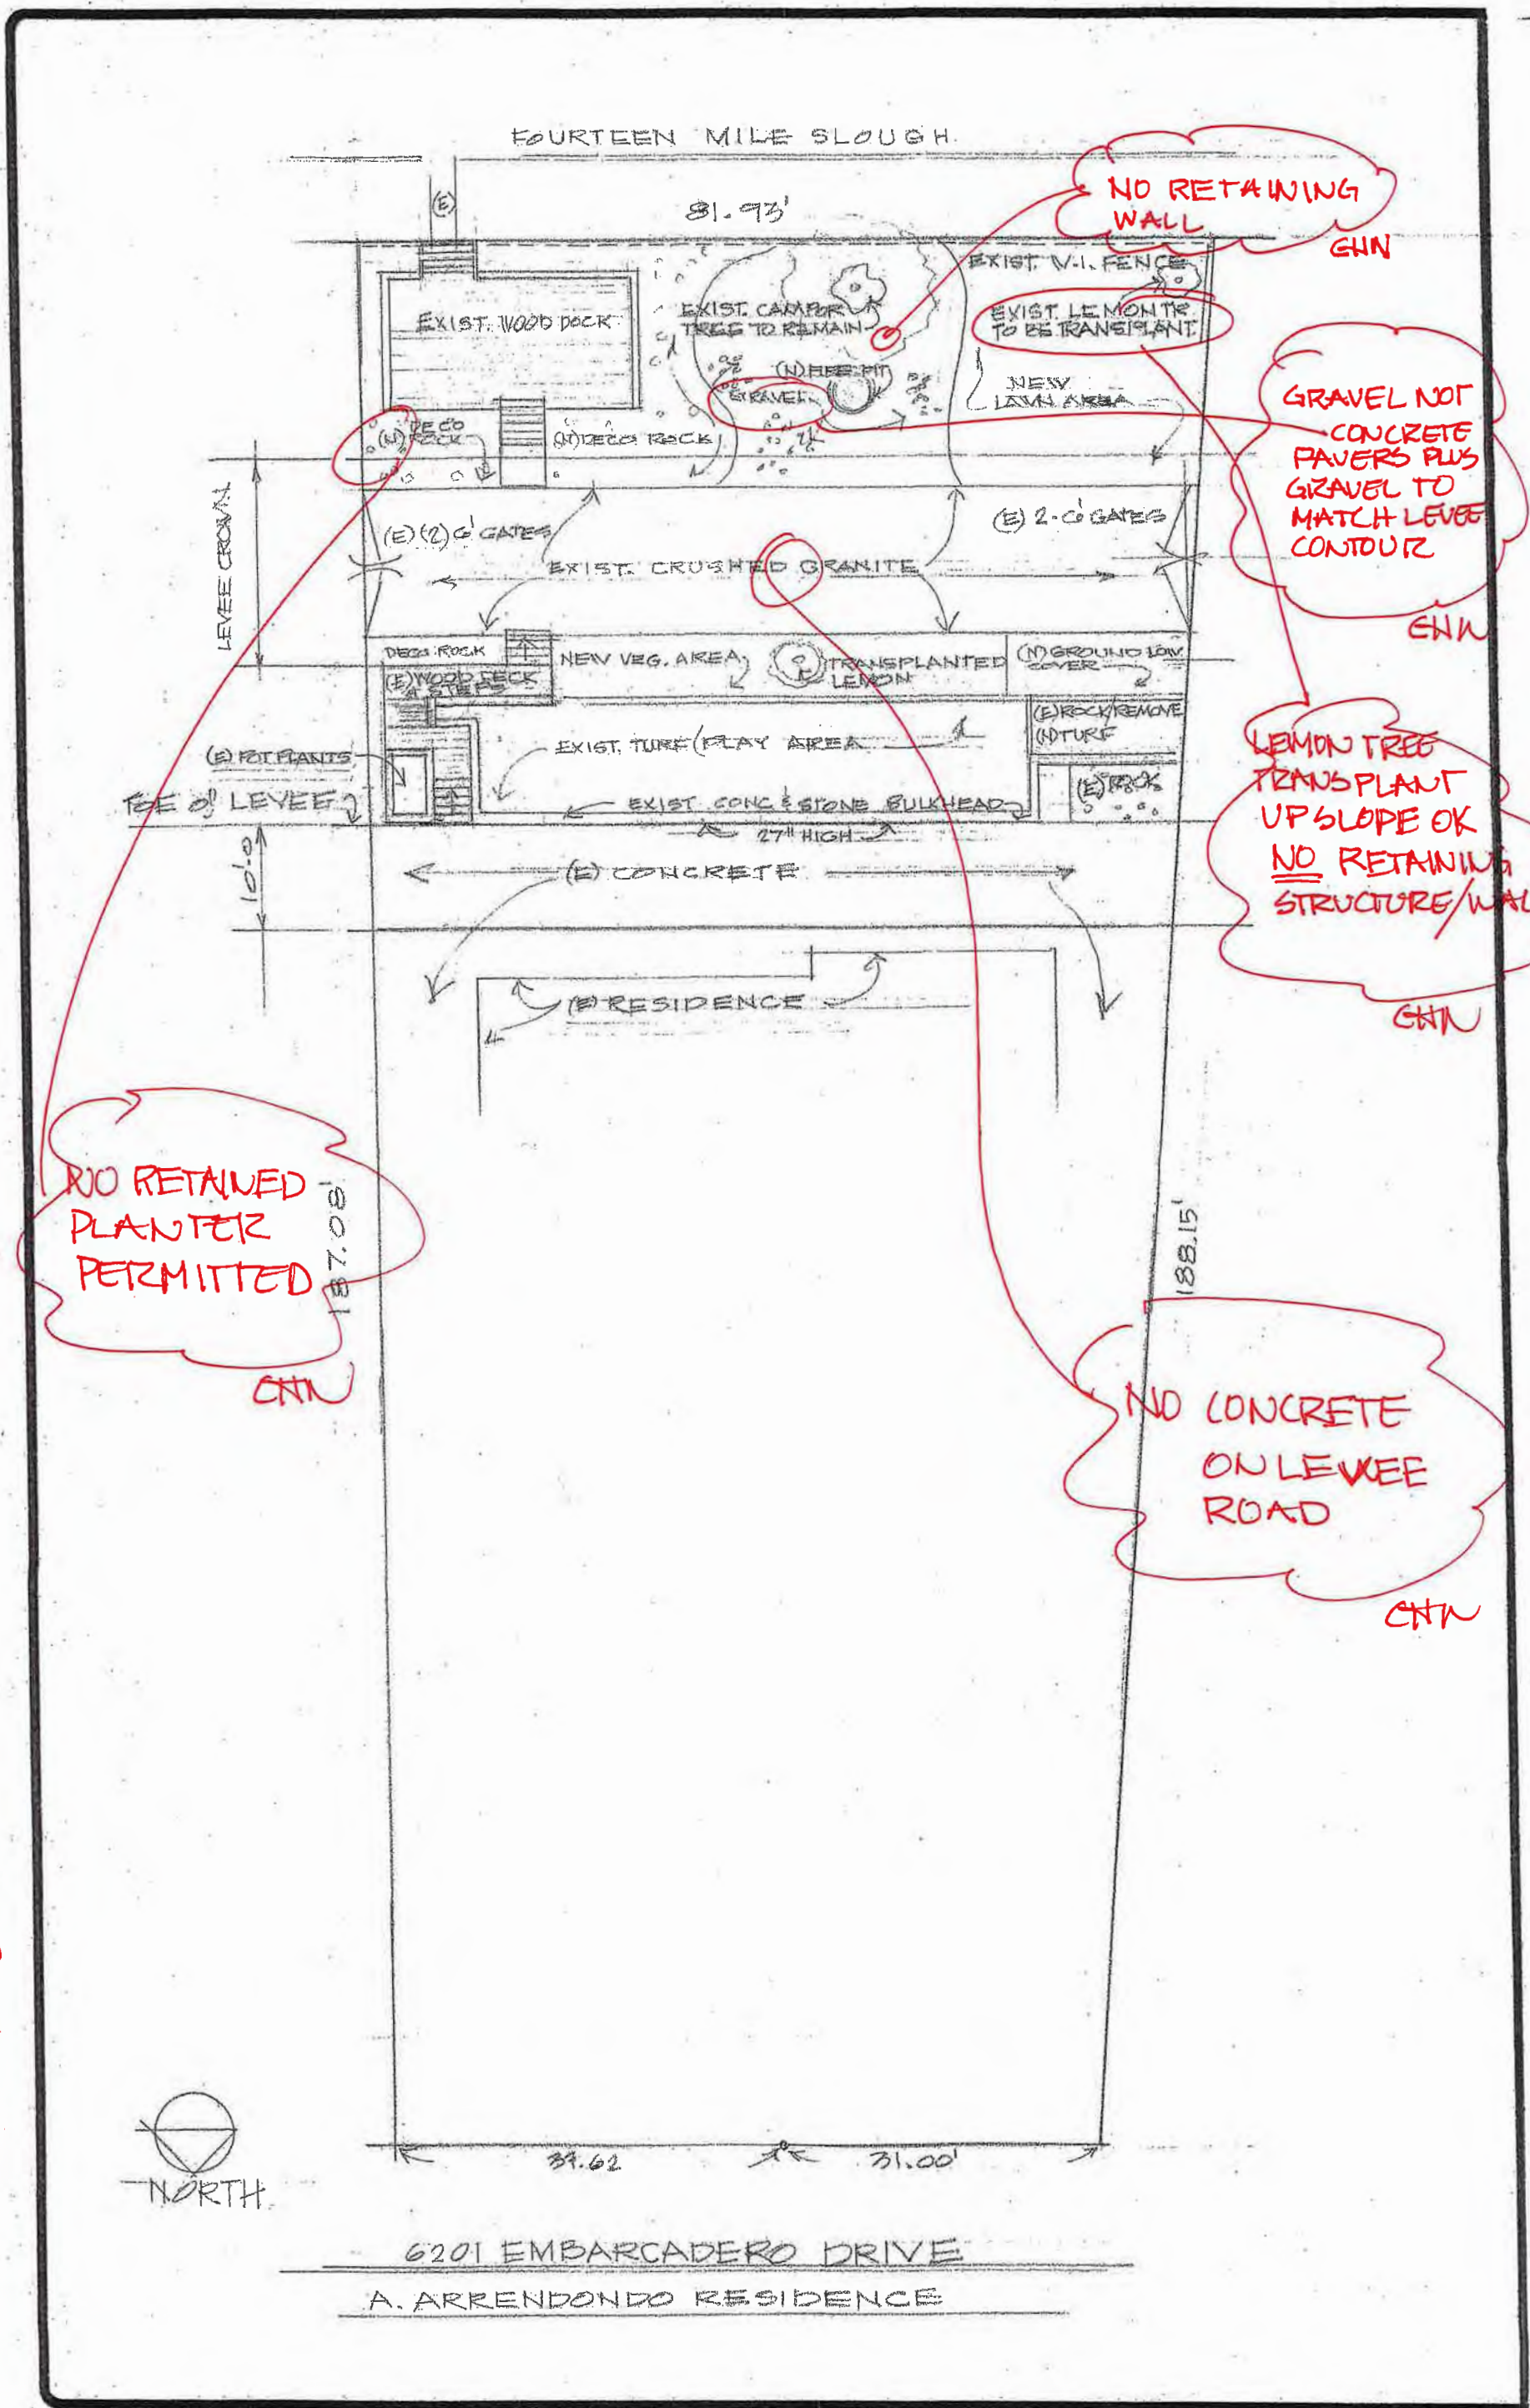 FOURTEEN MILE SLOUGH
(E)
81.93'
NO RETAINING
WALL
EHN
EXIST. W.I. FENCE
EXIST. WOOD DOCK
EXIST. CAMPOR
TREE TO REMAIN
EXIST. LEMON TR.
TO BE TRANSPLANT
(N) FIRE PIT
GRAVEL
NEW
LAWN AREA
GRAVEL NOT
CONCRETE
PAVERS PLUS
GRAVEL TO
MATCH LEVEE
CONTOUR
EHN
(N) DECO
ROCK
(N) DECO ROCK
LEVEE CROWN
(E) (2) 6' GATES
(E) 2-6' GATES
EXIST. CRUSHED GRANITE
DECO ROCK
NEW VEG. AREA
TRANSPLANTED
LEMON
(N) GROUND LOW
COVER
(E) WOOD DECK
& STEPS
(E) ROCK/REMOVE
(N) TURF
EXIST. TURF (PLAY AREA
(E) POT PLANTS
(E) ROCK
TOE OF LEVEE
EXIST CONC & STONE BULKHEAD
27" HIGH
10'-0
(E) CONCRETE
LEMON TREE
TRANSPLANT
UPSLOPE OK
NO RETAINING
STRUCTURE/WAL
EHN
(E) RESIDENCE
NO RETAINED
PLANTER
PERMITTED
EHN
187.08'
188.15'
NO CONCRETE
ON LEVEE
ROAD
EHN
NORTH
37.62
31.00'
6201 EMBARCADERO DRIVE
A. ARRENDONDO RESIDENCE